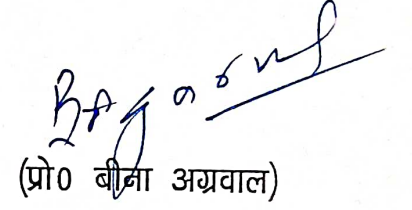 (प्रो0 बीना अग्रवाल)